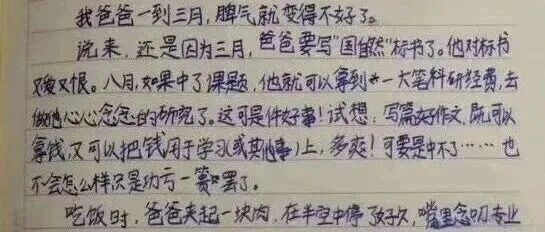 我爸爸一到三月，脾气就变得不好了。
说来，还是因为三月，爸爸要写"国自然"标书了。他对标书
又爱又恨。八月，如果中了课题，他就可以拿到一大笔科研经费，去
做他心心念念的研究了。这可是件好事！试想，写篇好作文，既可以
拿钱，又可以把钱用于学习（或其他事）上，多爽！可要是中不了……也
不会怎么样只是功亏一篑罢了。
吃饭时，爸爸夹起一块肉，在半空中停了好久，嘴里念叨专业